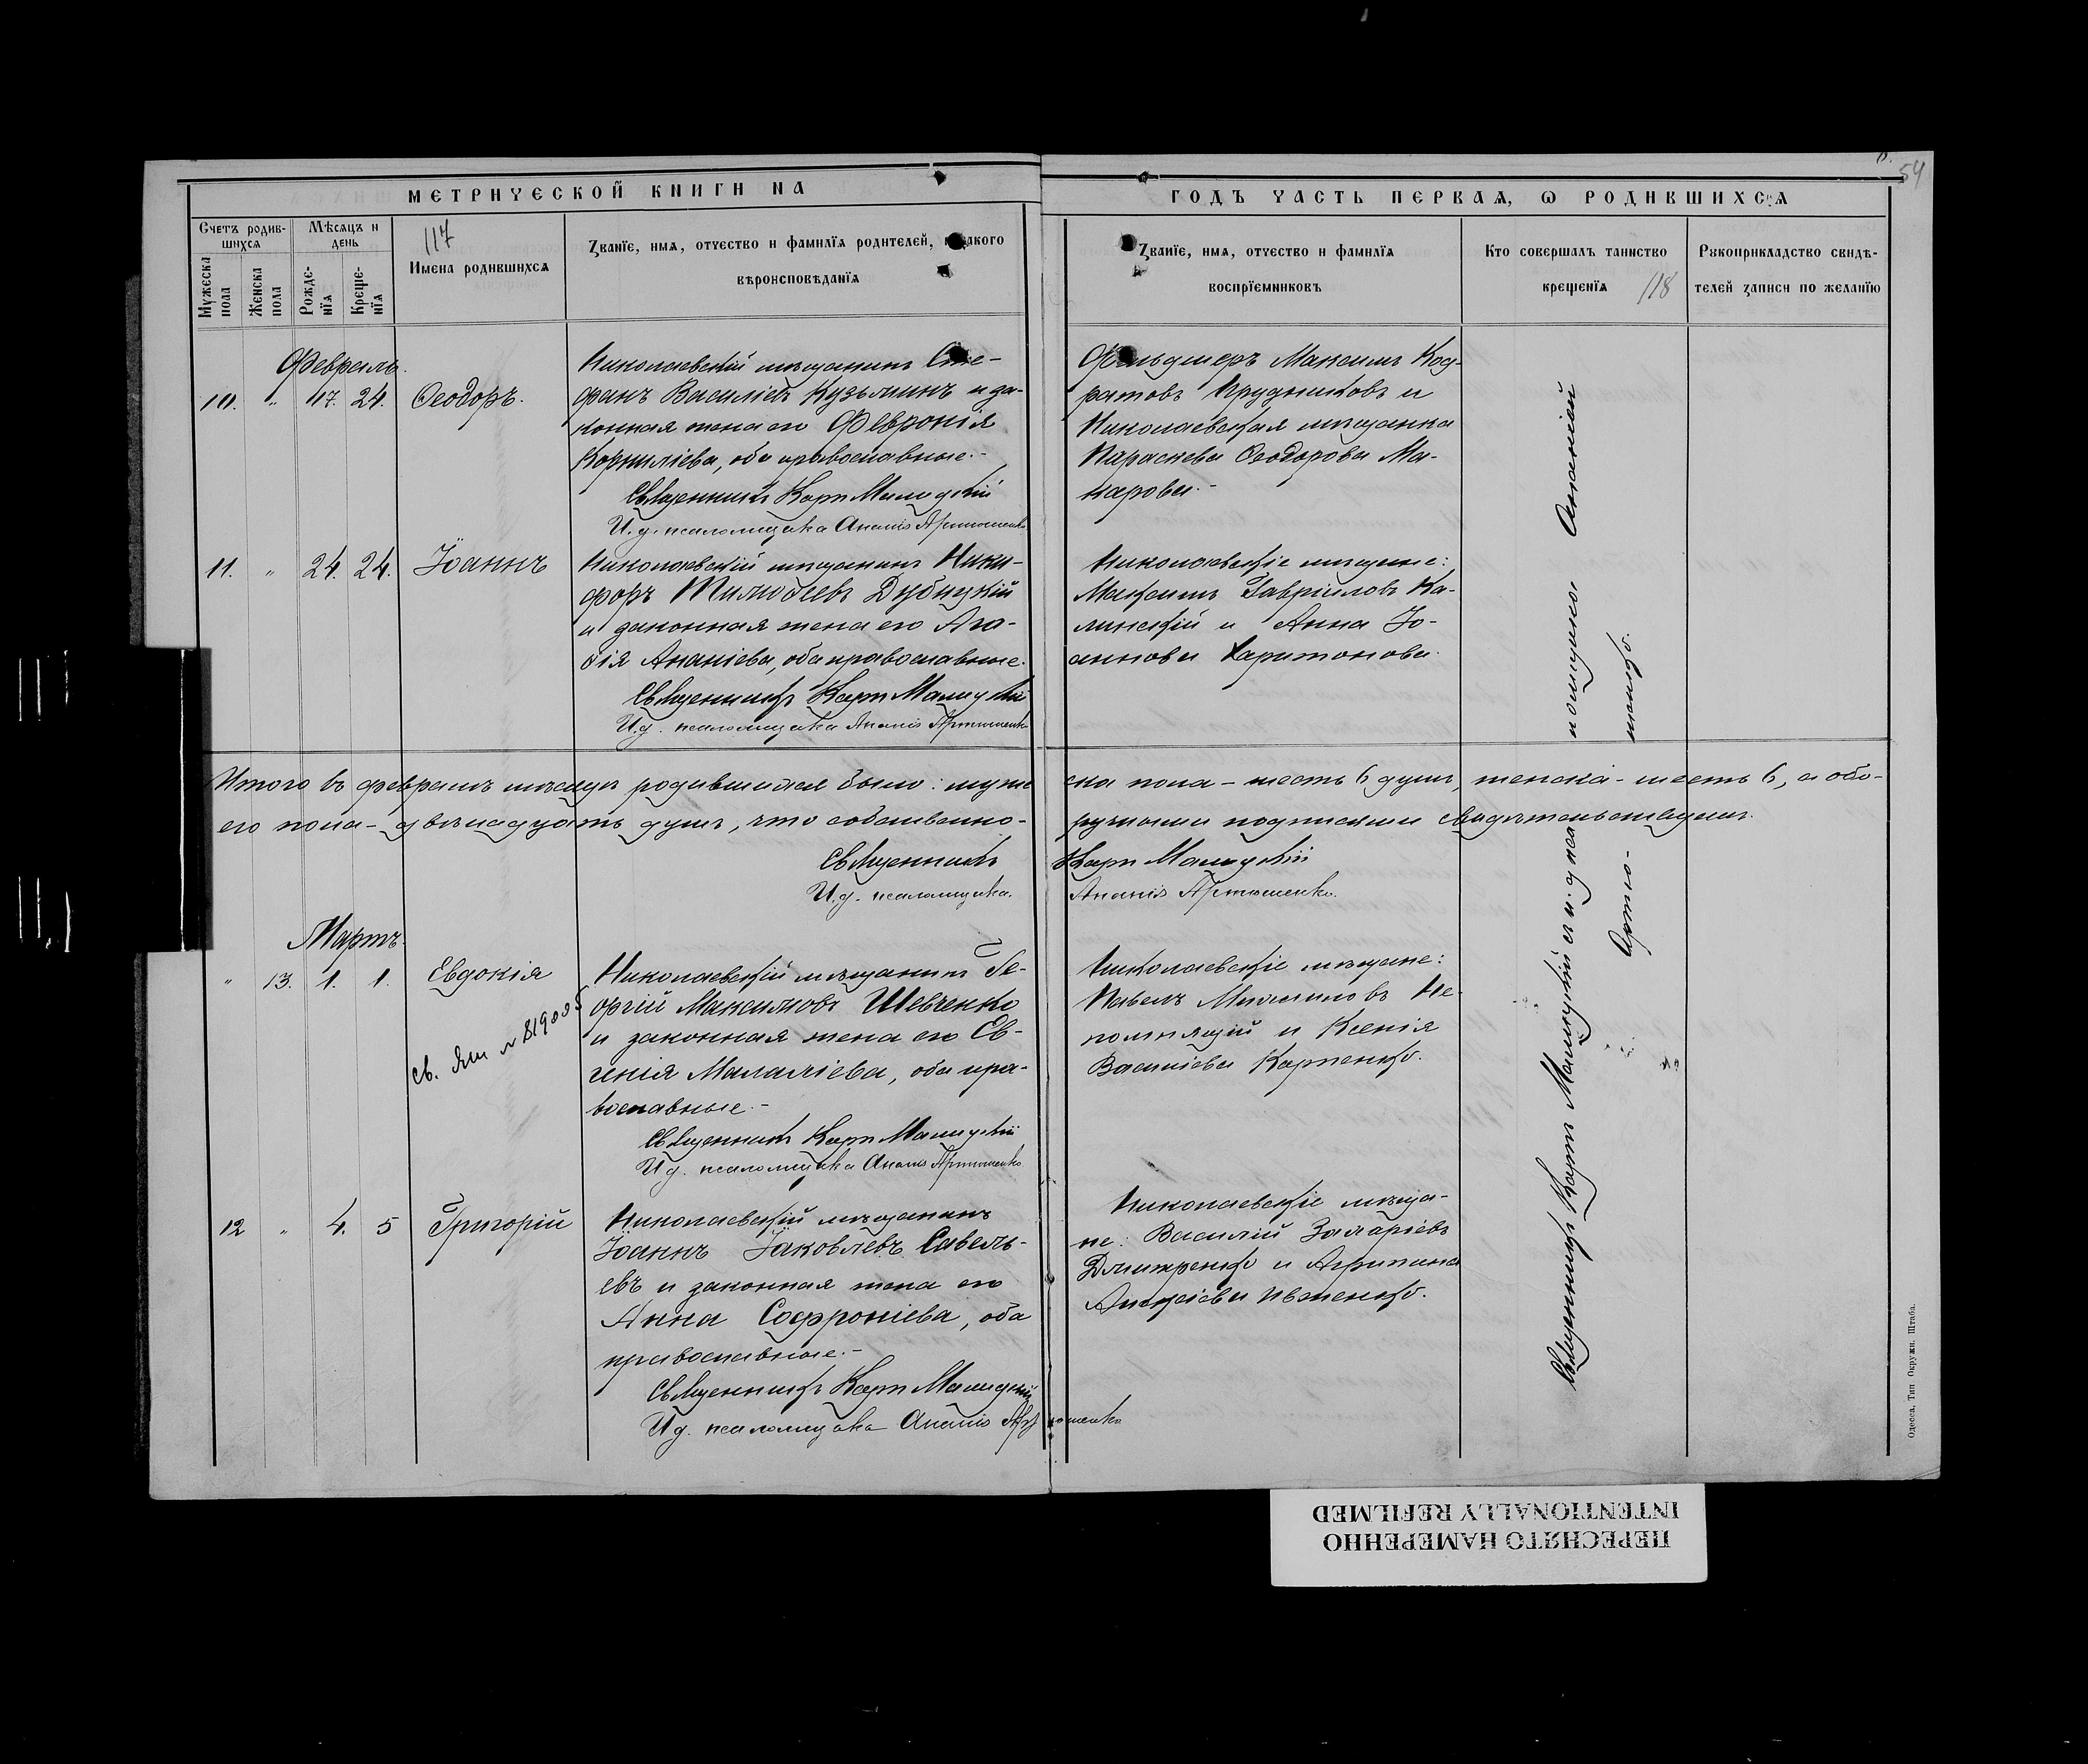 МЕТРИЧЕСКОЙ КНИГИ НА
ГОДЪ ЧАСТЬ ПЕРВАЯ, Ѡ РОДИВШИХСѦ
54
Счетъ родив-
шихсѧ
Мѣсѧцъ и
день
117
Имена родившихсѧ
Мужеска пола
Женска пола
Рожде-нїѧ
Креще-нїѧ
Званїе, имѧ, отчество и фамилїѧ родителей, и какого
вѣроисповѣданїѧ
Званїе, имѧ, отчество и фамилїѧ
воспрїемниковъ
Кто совершалъ таинство
крещенїѧ 118
Рукоприкладство свидѣ-
телей записи по желанїю
Февраль.
10. " 17. 24. Ѳеодоръ.
Николаевскій мѣщанинъ Сте-
фанъ Василіевъ Кузьминъ и за-
конная жена его Февронія
Корниліева, оба православные.-
Священникъ Карп Малицкій
И. д. псаломщика Ананія Артюшенко
Фельдшеръ Максимъ Код-
ратовъ Прудниковъ и
Николаевская мѣщанка
Параскева Ѳеодорова Ма-
карова.-
11. " 24. 24. Іоаннъ
Николаевскій мѣщанинъ Ники-
форъ Тимоѳеевъ Дубицкій
и законная жена его Ага-
ѳія Ананіева, оба православные.
Священникъ Карп Малицкій
И. д. псаломщика Ананія Артюшенко
Николаевскіе мѣщане:
Максимъ Гавріиловъ Ка-
линскій и Анна Іо-
аннова Харитонова.
Итого въ февралѣ мѣсяцѣ родившихся было: муже
ска пола - шесть 6 душъ, женска - шесть 6, а обо-
его пола - двѣнадцать душъ, что собственно-
ручными подписями свидѣтельствуемъ.
Священникъ Карп Малицкій
И. д. псаломщика. Ананія Артюшенко.
Мартъ.
" 13. 1. 1. Евдокія
Св. № 819005
Николаевскій мѣщанинъ Ге-
оргій Максимовъ Шевченко
и законная жена его Ев-
генія Малаліева, оба пра-
вославные.-
Священникъ Карп Малицкій
И д. псаломщика Ананія Артюшенко
Николаевскіе мѣщане:
Павелъ Не-
помнящій и Ксенія
Василіева Карпенко.
12 " 4. 5 Григорій
Николаевскій мѣщанинъ
Іоаннъ Іаковлевъ Савель-
евъ и законная жена его
Анна Софроніева, оба
православные.-
Священникъ Карп Малицкій
И д. псаломщика Ананія Артюшенко
Николаевскіе мѣща-
не: Василій Захаріевъ
Дмитренко и Агрипина
Алексіева Ивженко.
Священникъ Карп Малицкій съ и. д. псаломщика Ананіей
Артюшенко.
Одесса, Тип Окружн. Штаба.
ПЕРЕСНЯТО НАМЕРЕННО
INTENTIONALLY REFILMED